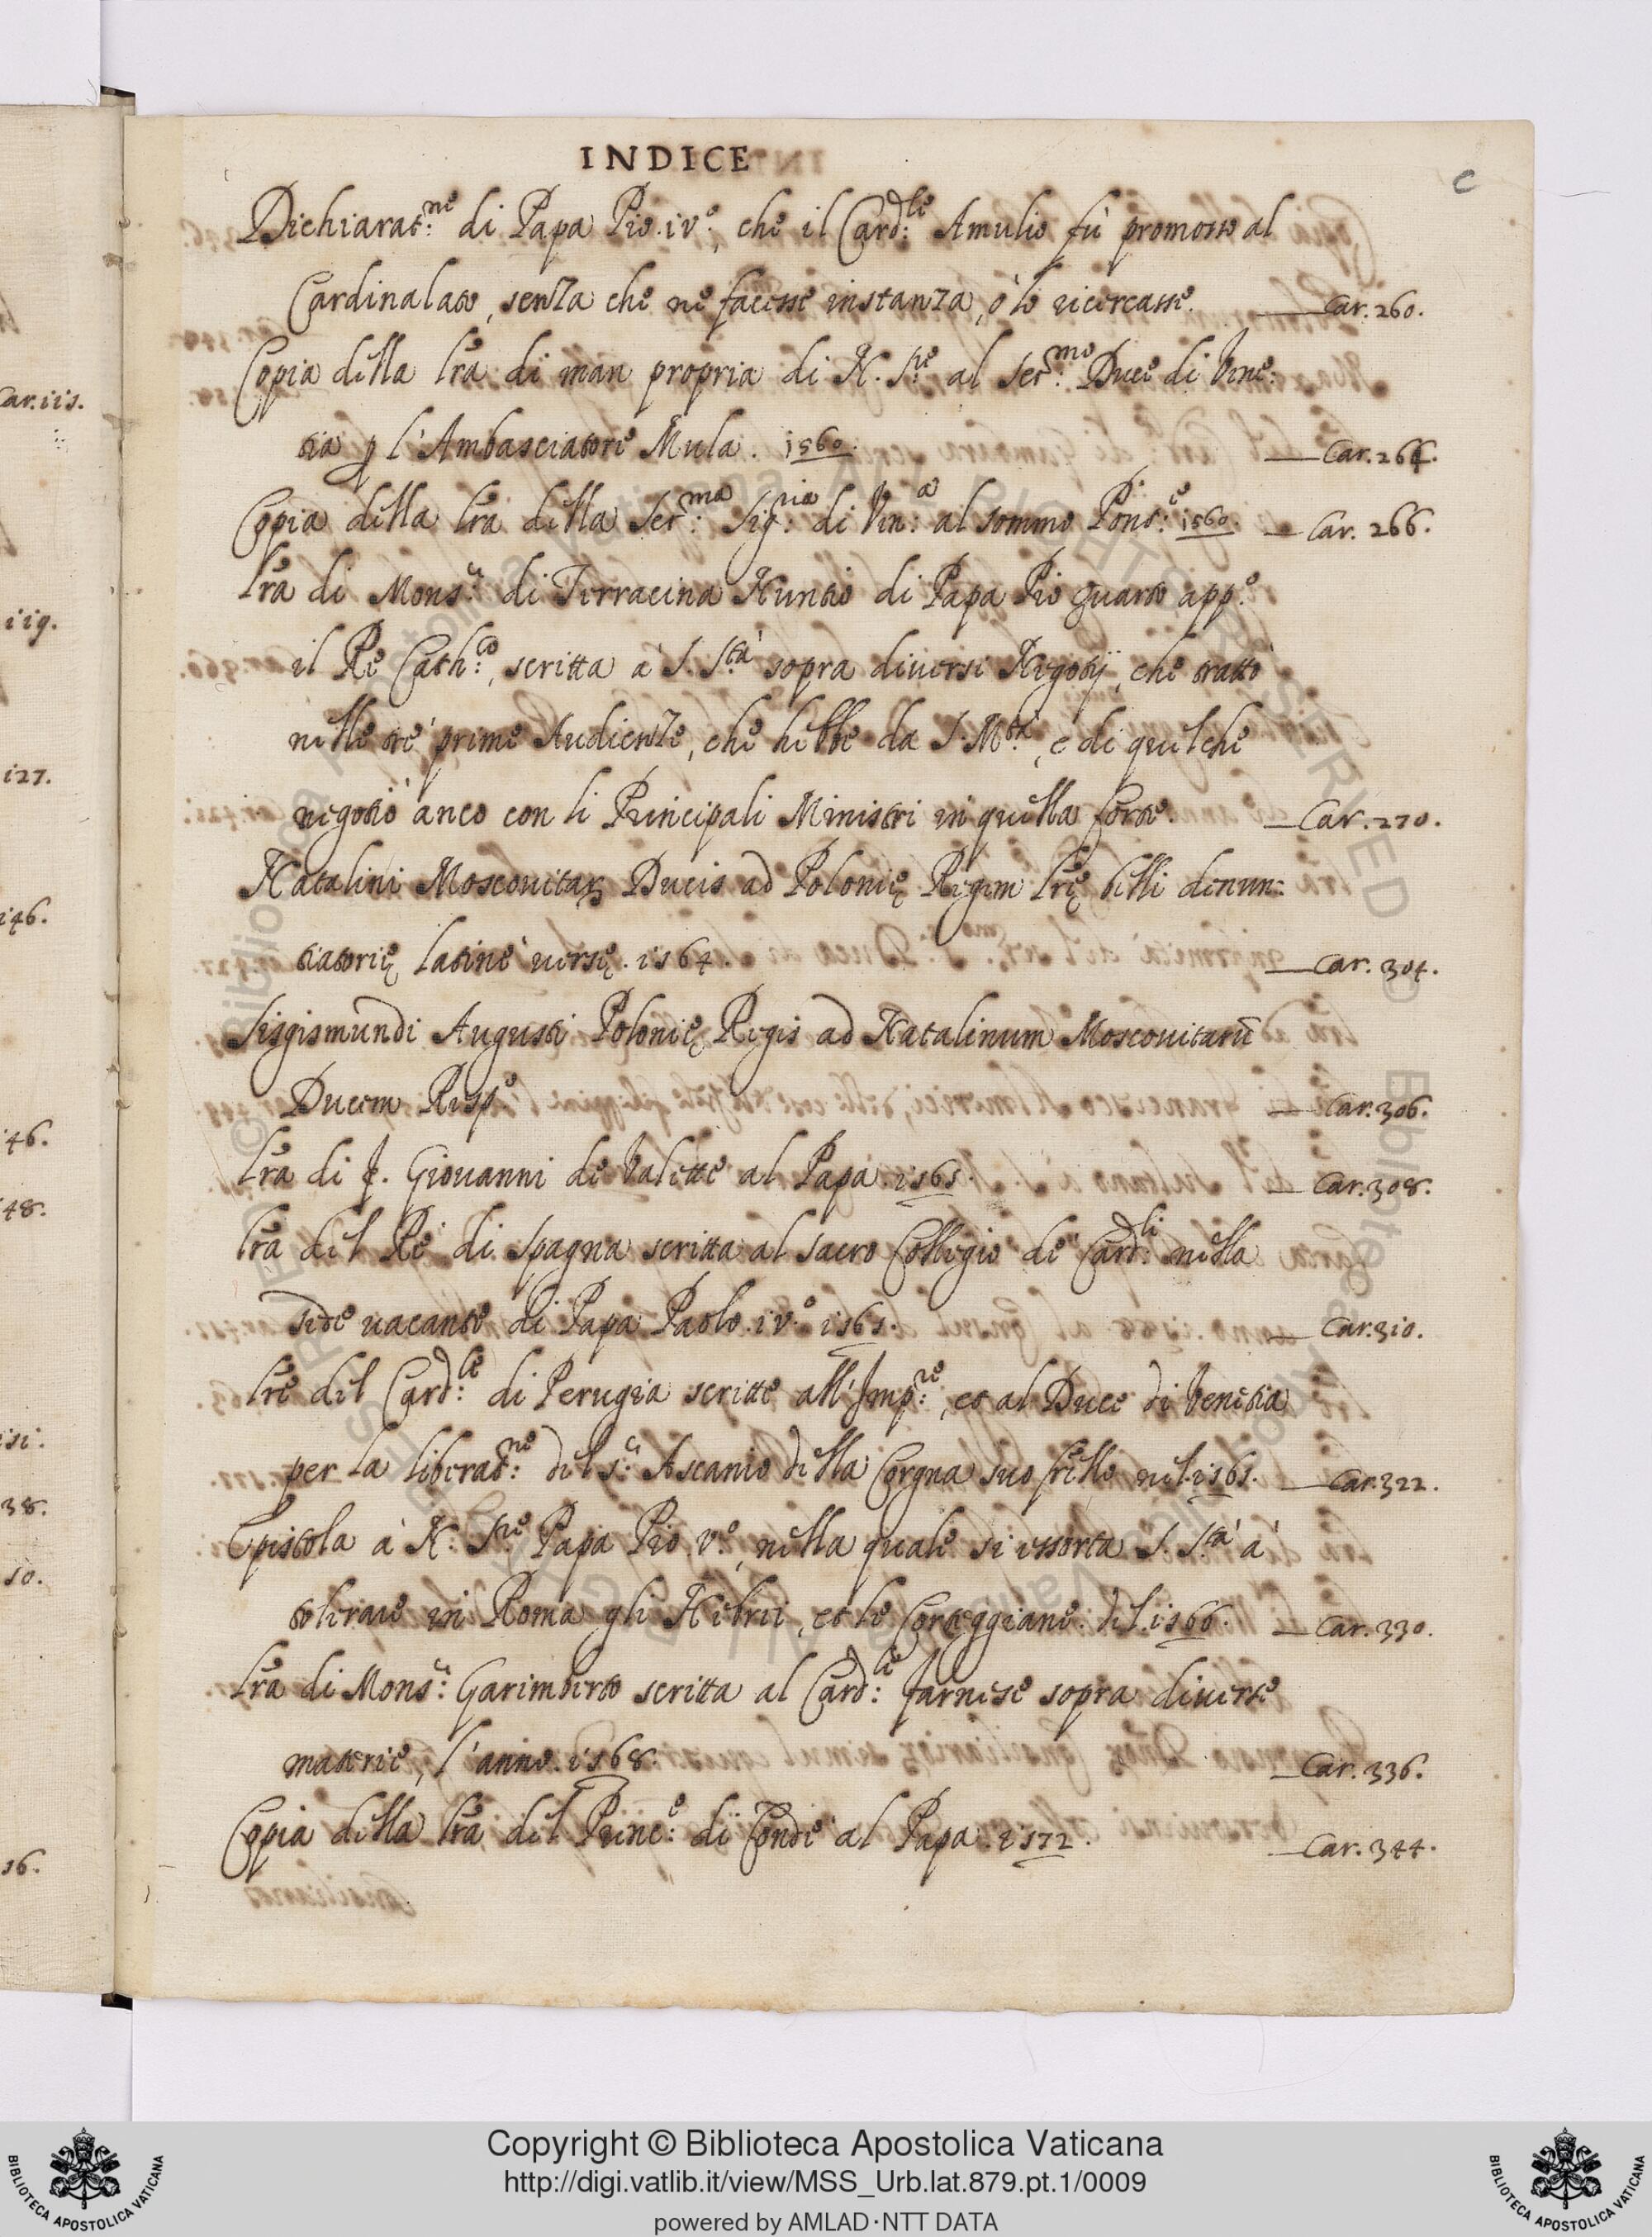 INDICE
c
Dichiarat:ne di Papa Pio .iv.º, che il Card:le Amulio fù promosso al
Cardinalato, senza che ne facesse instanza, ò lo ricercasse. Car. 260.
Copia della lr̃a di man propria di N. S.re al Ser:mo Duce di Vene:
tia ꝑ l'Ambasciatore Mula. 1560. Car. 264.
Copia della lr̃a della Ser:ma Sig:ria di Ven:a al sommo Pont:e 1560. Car. 266.
lr̃a di Mons.r di Terracina Nuntio di Papa Pio quarto app.º
il Re Cath:co, scritta a' S. S.tà sopra diuersi Negotij, che trattò
nelle tre' prime Audienze, che hebbe da S. M.tà, e di quelche
negotiò anco con li Principali Ministri in quella Corte. Car. 270.
Natalini Moscouitaꝝ Ducis ad Polonię Regem lr̃ę belli denun:
tiatorię latine' uersę. 1564. Car. 304.
Sisgismundi Augusti Polonię Regis ad Natalinum Moscouitarũ
Ducem Resp.e Car. 306.
lr̃a di F. Giouanni de Valette al Papa. 1565. Car. 308.
lr̃a del Re' di Spagna scritta al sacro Collegio de' Card:li nella
sede uacante di Papa Paolo .iv.º 1565. Car. 310.
lr̃e del Card:le di Perugia scritte all'Imp:re, et al Duce di Venetia
per la liberat:ne del s.r Ascanio della Corgna suo frello nel. 1565. Car. 322.
Epistola à N. S.re Papa Pio .v.º, nella quale si essorta S. S.tà à
tolerare in Roma gli Hebrei, et le Corteggiane. del. 1566. Car. 330.
lr̃a di Mons.r Garimberto scritta al Card:le Farnese sopra diuerse
materie, l'anno. 1568. Car. 336.
Copia della lr̃a del Prinć:e di Condè al Papa. 1572. Car. 344.
Car. 115.
119.
127.
146.
146.
148.
151.
38.
50.
56.
Copyright © Biblioteca Apostolica Vaticana
http://digi.vatlib.it/view/MSS_Urb.lat.879.pt.1/0009
powered by AMLAD·NTT DATA
BIBLIOTECA APOSTOLICA VATICANA
BIBLIOTECA APOSTOLICA VATICANA